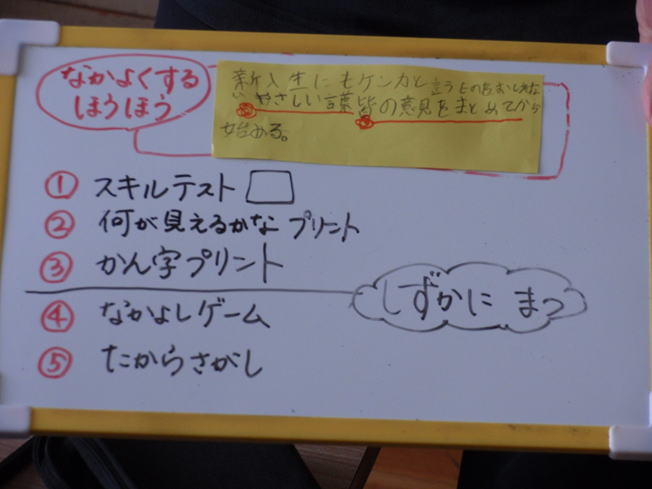 なかよくする
ほうほう
新入生にもケンカと言うものをおしえな
い やさしい言葉 皆の意見をまとめてから
始める。
① スキルテスト
② 何が見えるかな プリント
③ かん字プリント
しずかに まつ
④ なかよしゲーム
⑤ たからさがし